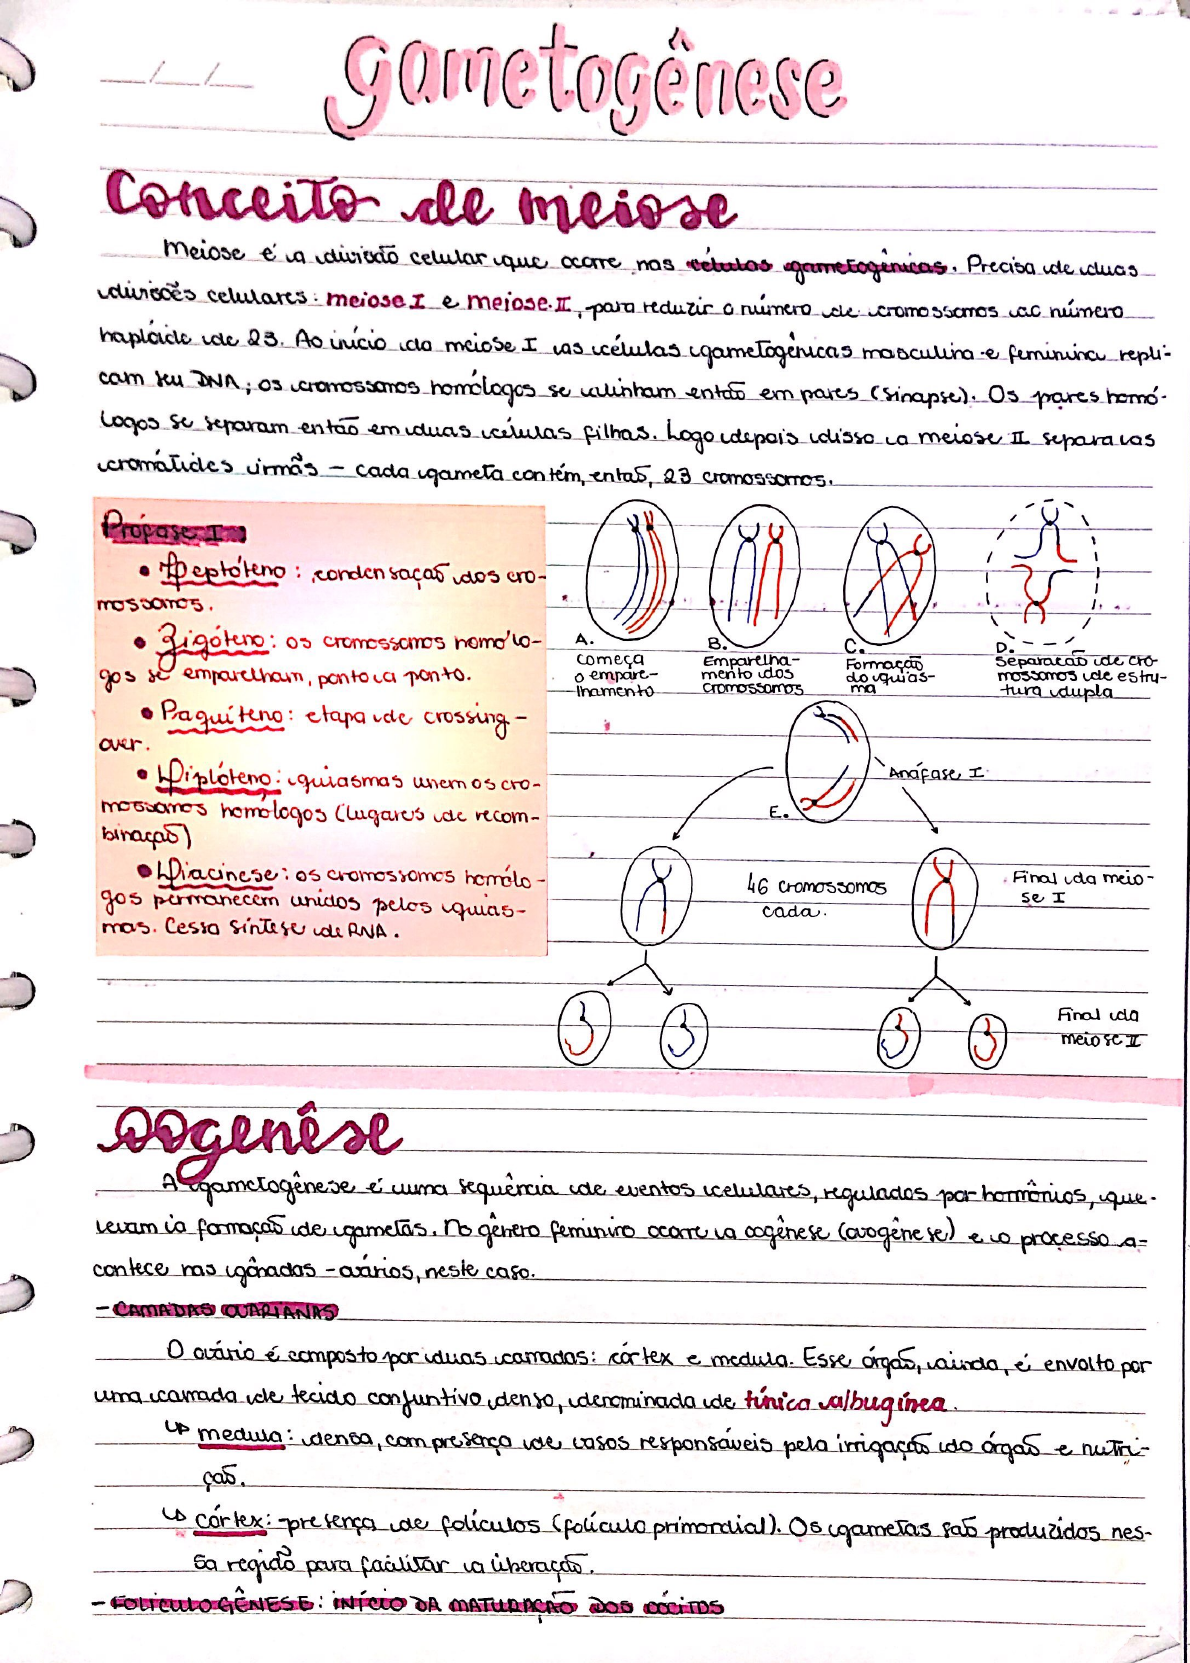 gametogênese
Conceito de meiose
Meiose é a divisão celular que ocorre nas células gametogênicas. Precisa de duas
divisões celulares: meiose I e meiose II, para reduzir o número de cromossomos ao número
haplóide de 23. Ao início da meiose I as células gametogênicas masculina e feminina repli-
cam seu DNA; os cromossomos homólogos se alinham então em pares (sinapse). Os pares homó-
logos se separam então em duas células filhas. Logo depois disso a meiose II separa as
cromátides irmãs - cada gameta contém, então, 23 cromossomos.
Prófase I
• Leptóteno: condensação dos cro-
mossomos.
• Zigóteno: os cromossomos homólo-
gos se emparelham, ponto a ponto.
• Paquíteno: etapa de crossing-
over.
• Diplóteno: quiasmas unem os cro-
mossomos homólogos (lugares de recom-
binação)
• Diacinese: os cromossomos homólo-
gos permanecem unidos pelos quias-
mas. Cessa síntese de RNA.
A.
Começa
o empare-
lhamento
B.
Emparelha-
mento dos
cromossomos
C.
Formação
do quias-
ma
D.
Separação de cro-
mossomos de estru-
tura dupla
Anáfase I
E.
46 cromossomos
cada.
Final da meio-
se I
Final da
meiose II
oogenêse
A gametogênese é uma sequência de eventos celulares, regulados por hormônios, que
levam à formação de gametas. No gênero feminino ocorre a oogênese (ovogênese) e o processo a-
contece nas gônadas - ovários, neste caso.
- CAMADAS OVARIANAS
O ovário é composto por duas camadas: córtex e medula. Esse órgão, ainda, é envolto por
uma camada de tecido conjuntivo denso, denominada de túnica albugínea.
↳ medula: densa, com presença de vasos responsáveis pela irrigação do órgão e nutri-
ção.
↳ córtex: presença de folículos (folículo primordial). Os gametas são produzidos nes-
sa região para facilitar a liberação.
- FOLICULOGÊNESE: INÍCIO DA MATURAÇÃO DOS OÓCITOS